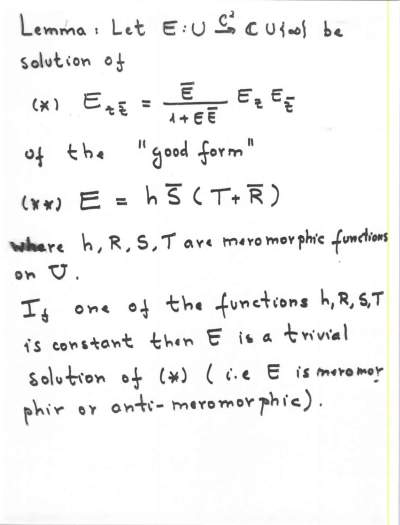 Lemma: Let E: U \xrightarrow{C^2} ℂ ∪ {∞} be
solution of
(*) E_{z\bar{z}} = \frac{\bar{E}}{1+E\bar{E}} E_z E_{\bar{z}}
of the "good form"
(**) E = h \bar{S} (T + \bar{R})
where h, R, S, T are meromorphic functions
on U.
If one of the functions h, R, S, T
is constant then E is a trivial
solution of (*) (i.e E is meromor
phir or anti-meromorphic).